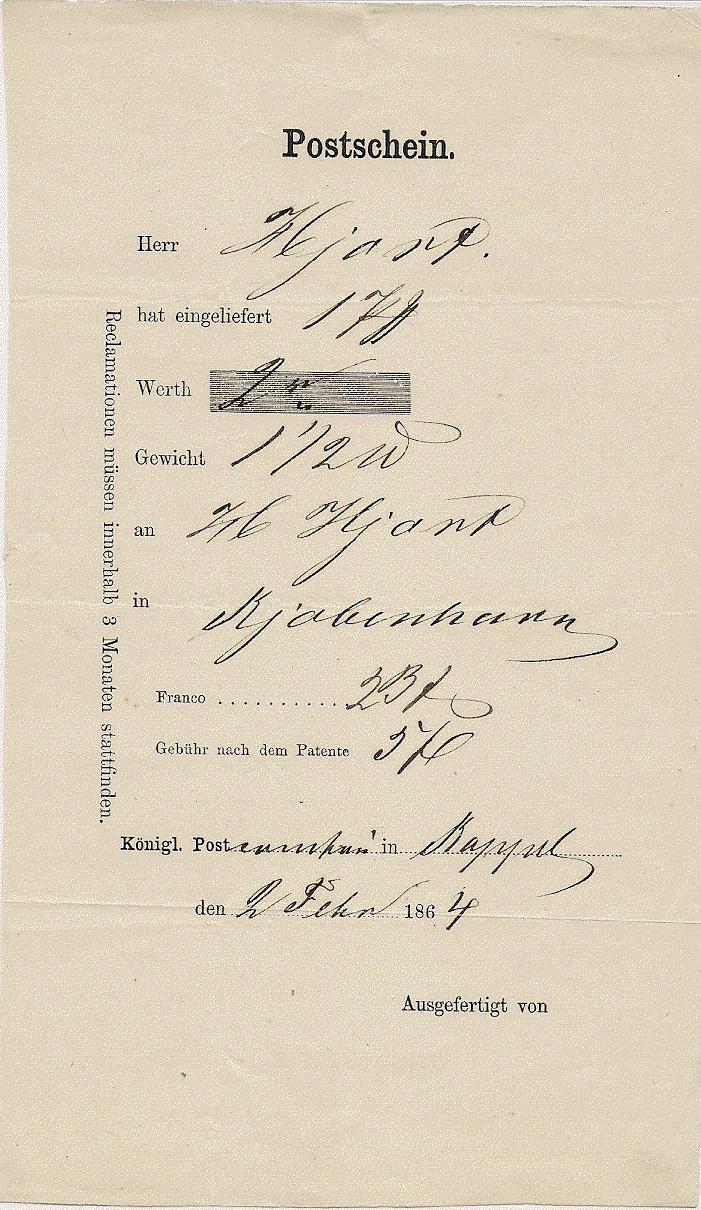 Postschein.
Herr Hjort.
hat eingeliefert 1
Werth 2
Gewicht 1 1/2
an Hjort
in Kjöbenhavn
Franco ............ 23
Gebühr nach dem Patente 5
Königl. Post in Kappel
den 2 Febr 1864
Ausgefertigt von
Reclamationen müssen innerhalb 3 Monaten stattfinden.